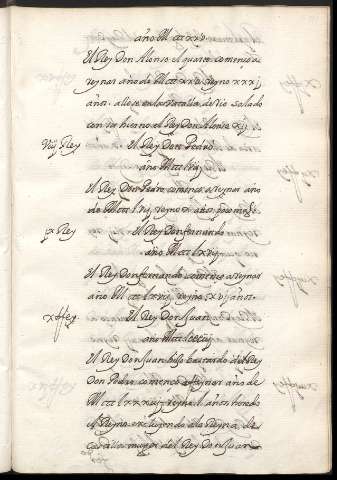 año M ccc xx v
El Rey Don Alonso el quarto començo a
reynar año de M ccc xx v Reyno xxxij
años. allose en la vatalla de Rio salado
con su hierno el Rey Don Alonso xij
Viij Rey El Rey Don Pedro
año M ccc lvij
El Rey Don Pedro començo a Reynar año
de M ccc l vij reyno x años
ix Rey El Rey Don fernando
año M ccc l xvij
El Rey Don fernando començo a reynar
año M ccc l xvij reyno x vj años.
x Rey El Rey Don Juan
año M ccc lxxxiij
El Rey Don Juan hijo bastardo del Rey
Don Pedro començo a Reynar año de
M ccc l xxx iij reyno l años heredo
el Reyno excluyendo a la Reyna de
Castilla muger del Rey Don Juan